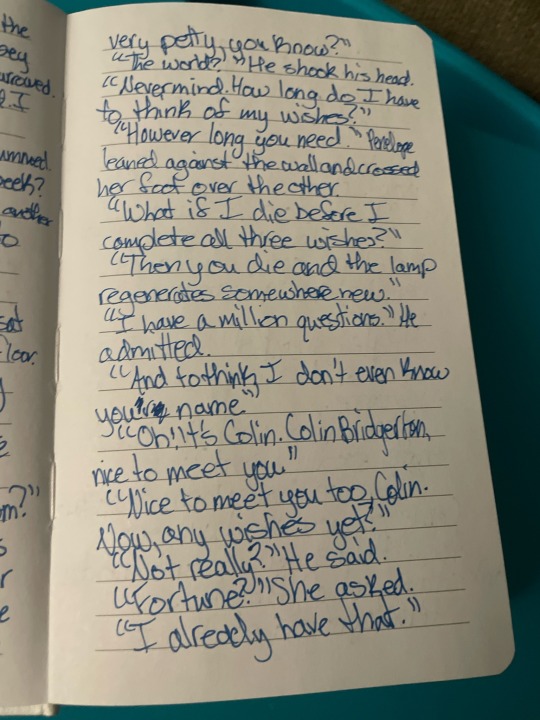 the
urrowed.
I
ummed.
peek?
another
to
sat
floor.
om?"
very petty, you know?"
"The world?" He shook his head.
"Nevermind. How long do I have
to think of my wishes?"
"However long you need." Penelope
leaned against the wall and crossed
her foot over the other.
"What if I die before I
complete all three wishes?"
"Then you die and the lamp
regenerates somewhere new."
"I have a million questions." He
admitted.
"And to think, I don't even know
your name"
"Oh! It's Colin. Colin Bridgerton,
nice to meet you"
"Nice to meet you too, Colin.
Now, any wishes yet?"
"Not really?" He said.
"Fortune?" She asked.
"I already have that."